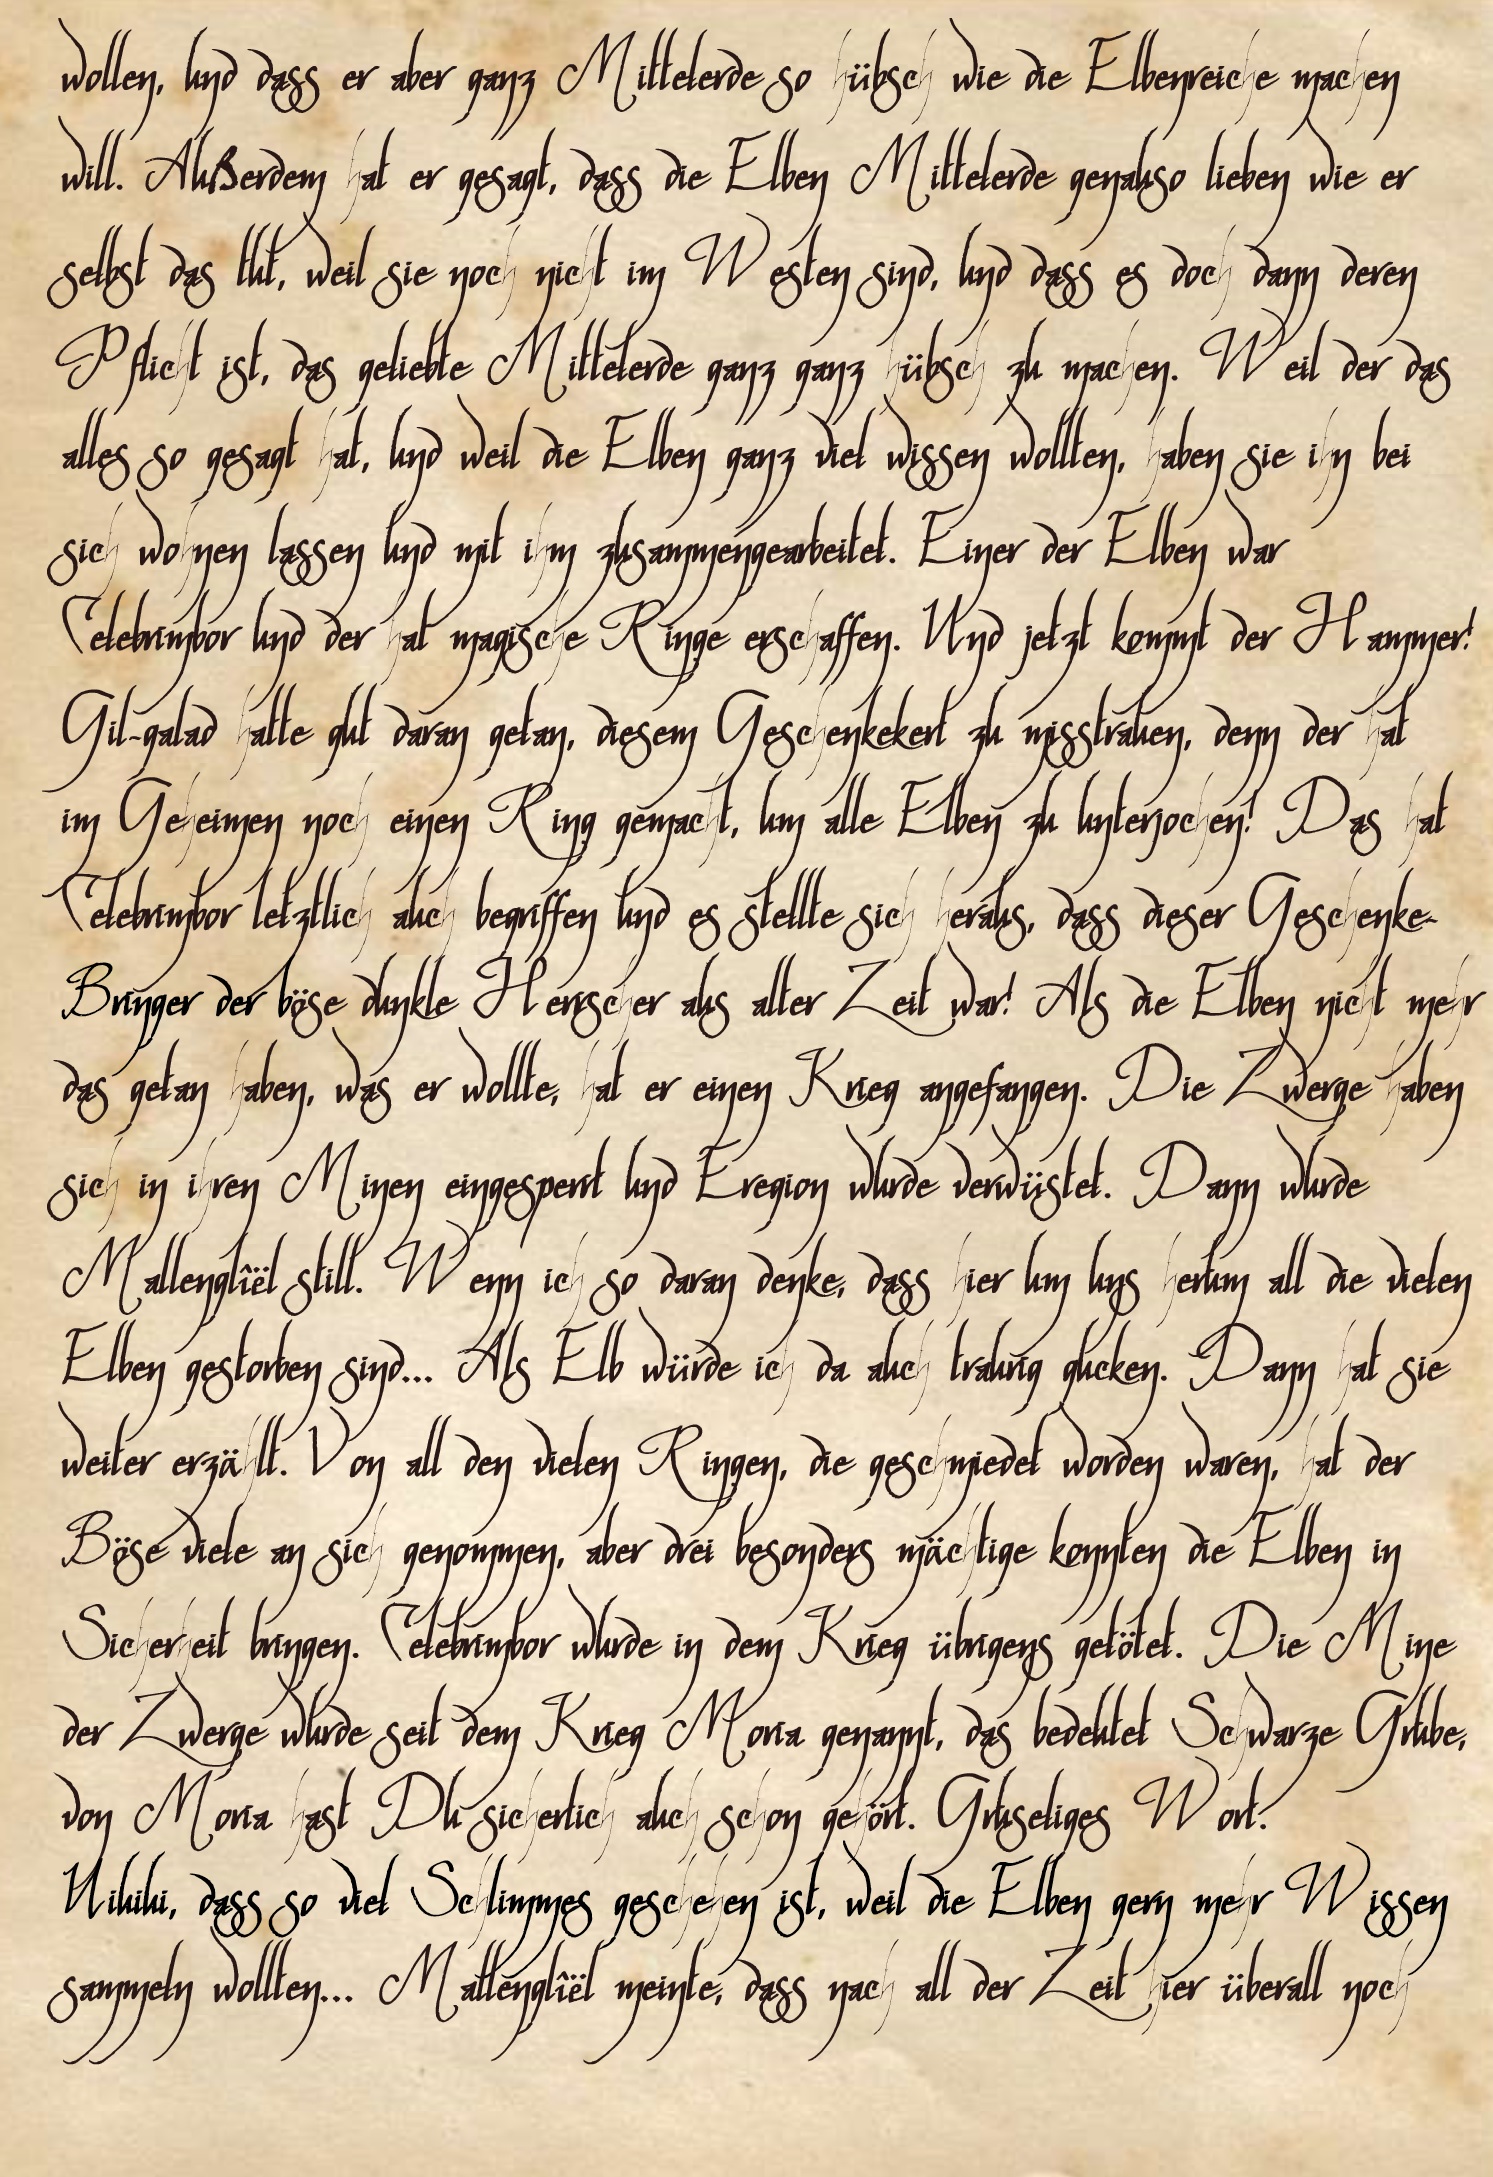 wollen, und dass er aber ganz Mittelerde so hübsch wie die Elbenreiche machen
will. Außerdem hat er gesagt, dass die Elben Mittelerde genauso lieben wie er
selbst das tut, weil sie noch nicht im Westen sind, und dass es doch dann deren
Pflicht ist, das geliebte Mittelerde ganz ganz hübsch zu machen. Weil der das
alles so gesagt hat, und weil die Elben ganz viel wissen wollten, haben sie ihn bei
sich wohnen lassen und mit ihm zusammengearbeitet. Einer der Elben war
Celebrimbor und der hat magische Ringe erschaffen. Und jetzt kommt der Hammer!
Gil-galad hatte gut daran getan, diesem Geschenkekerl zu misstrauen, denn der hat
im Geheimen noch einen Ring gemacht, um alle Elben zu unterjochen! Das hat
Celebrimbor letztlich auch begriffen und es stellte sich heraus, dass dieser Geschenke-
Bringer der böse dunkle Herrscher aus alter Zeit war! Als die Elben nicht mehr
das getan haben, was er wollte, hat er einen Krieg angefangen. Die Zwerge haben
sich in ihren Minen eingesperrt und Eregion wurde verwüstet. Dann wurde
Mallenglîël still. Wenn ich so daran denke, dass hier um uns herum all die vielen
Elben gestorben sind... Als Elb würde ich da auch traurig gucken. Dann hat sie
weiter erzählt. Von all den vielen Ringen, die geschmiedet worden waren, hat der
Böse viele an sich genommen, aber drei besonders mächtige konnten die Elben in
Sicherheit bringen. Celebrimbor wurde in dem Krieg übrigens getötet. Die Mine
der Zwerge wurde seit dem Krieg Moria genannt, das bedeutet Schwarze Grube,
von Moria hast Du sicherlich auch schon gehört. Gruseliges Wort.
Uiuiui, dass so viel Schlimmes geschehen ist, weil die Elben gern mehr Wissen
sammeln wollten... Mallenglîël meinte, dass nach all der Zeit hier überall noch